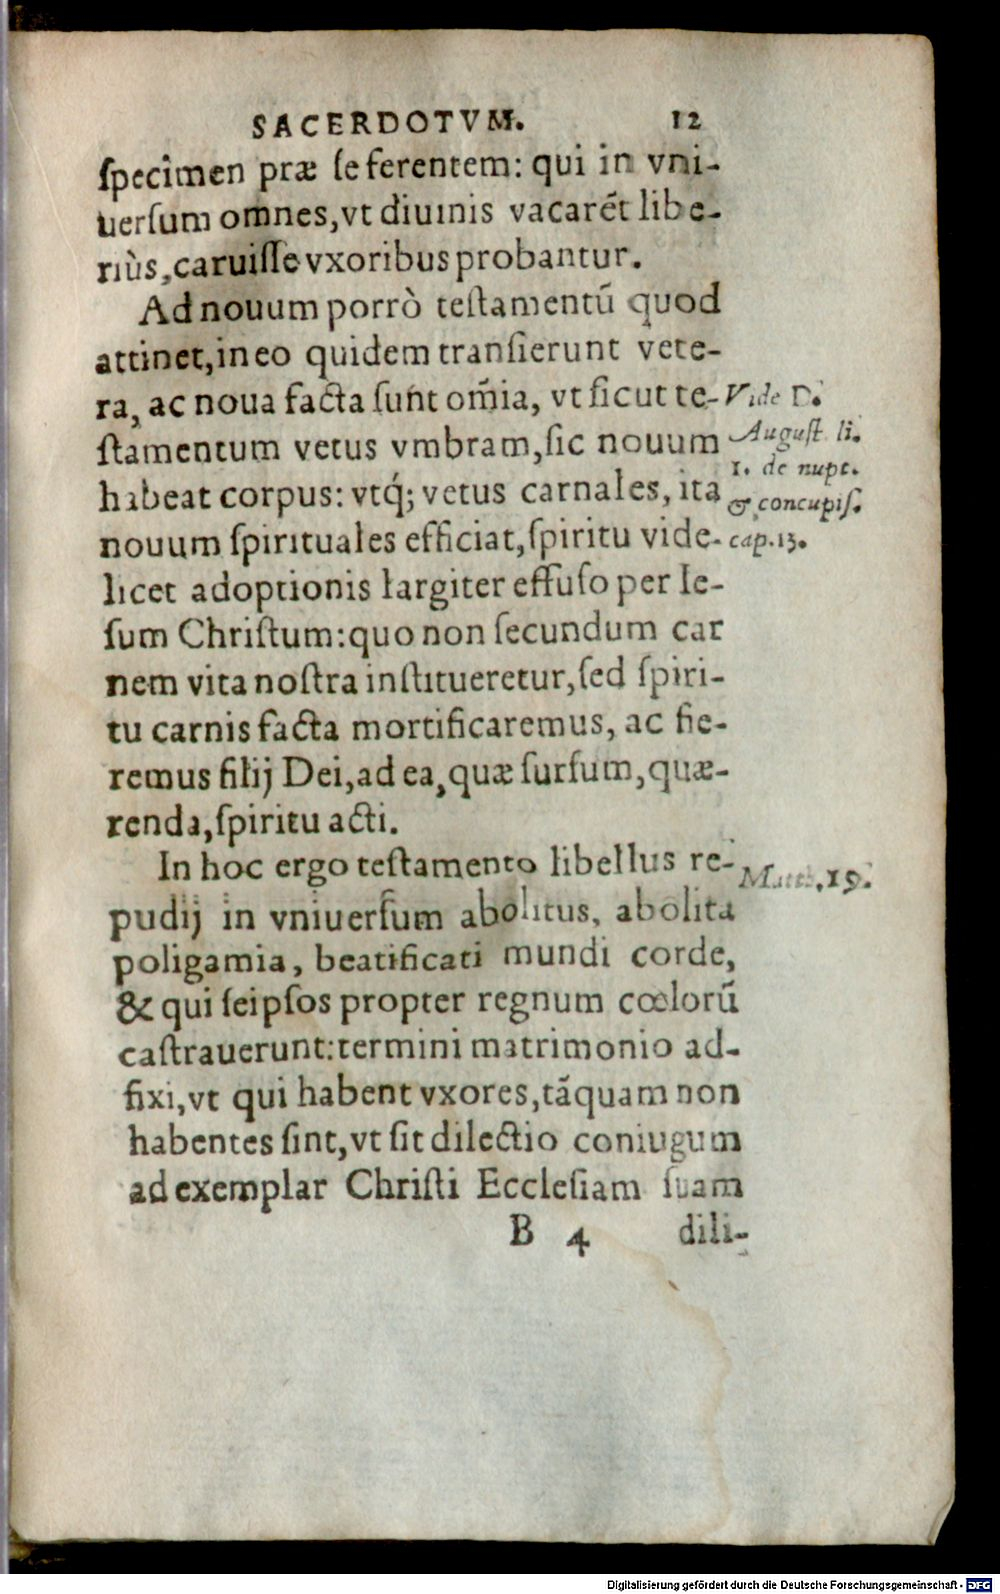 SACERDOTVM. 12
ſpecimen præ ſe ferentem: qui in vni-
uerſum omnes, vt diuinis vacarēt libe-
riùs, caruiſſe vxoribus probantur.
Ad nouum porrò teſtamentū quod
attinet, in eo quidem tranſierunt vete-
ra, ac noua facta ſunt om̄ia, vt ſicut te-
ſtamentum vetus vmbram, ſic nouum
habeat corpus: vtq́; vetus carnales, ita
nouum ſpirituales efficiat, ſpiritu vide-
licet adoptionis largiter effuſo per Ie-
ſum Chriſtum: quo non ſecundum car
nem vita noſtra inſtitueretur, ſed ſpiri-
tu carnis facta mortificaremus, ac fie-
remus filij Dei, ad ea, quæ ſurſum, quæ-
renda, ſpiritu acti.
Vide D.
Auguſt li.
1. de nupt.
& concupiſ.
cap. 13.
In hoc ergo teſtamento libellus re-
pudij in vniuerſum abolitus, abolita
poligamia, beatificati mundi corde,
& qui ſeipſos propter regnum cœlorū
caſtrauerunt: termini matrimonio ad-
fixi, vt qui habent vxores, tāquam non
habentes ſint, vt ſit dilectio coniugum
ad exemplar Chriſti Eccleſiam ſuam
Matth. 19.
B 4 dili-
Digitalisierung gefördert durch die Deutsche Forschungsgemeinschaft - DFG